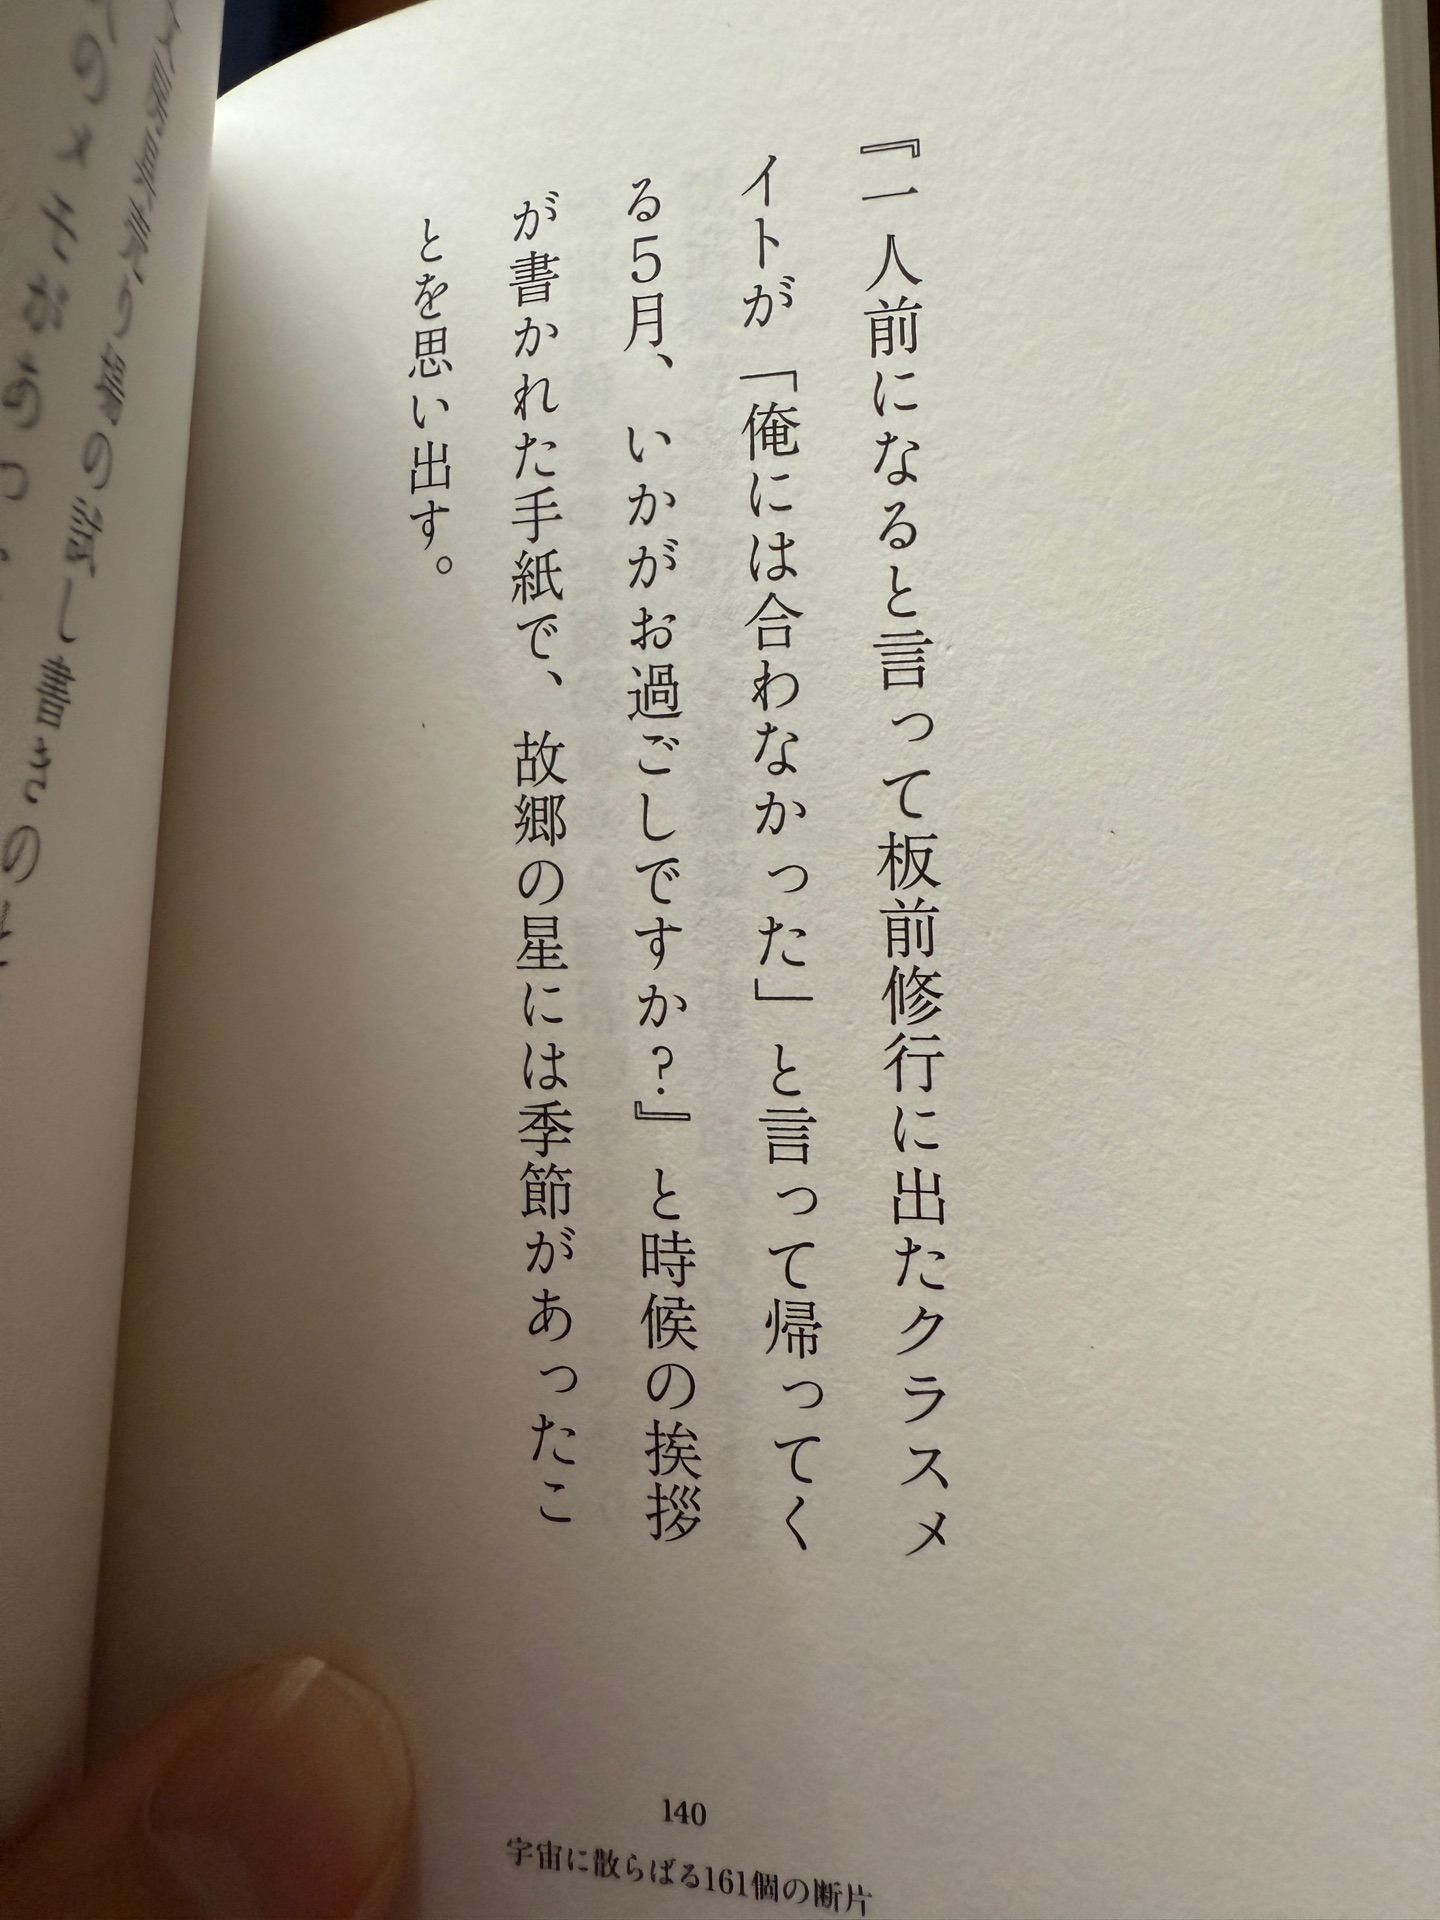 『一人前になると言って板前修行に出たクラスメ
イトが「俺には合わなかった」と言って帰ってく
る5月、いかがお過ごしですか？』と時候の挨拶
が書かれた手紙で、故郷の星には季節があったこ
とを思い出す。
140
宇宙に散らばる161個の断片